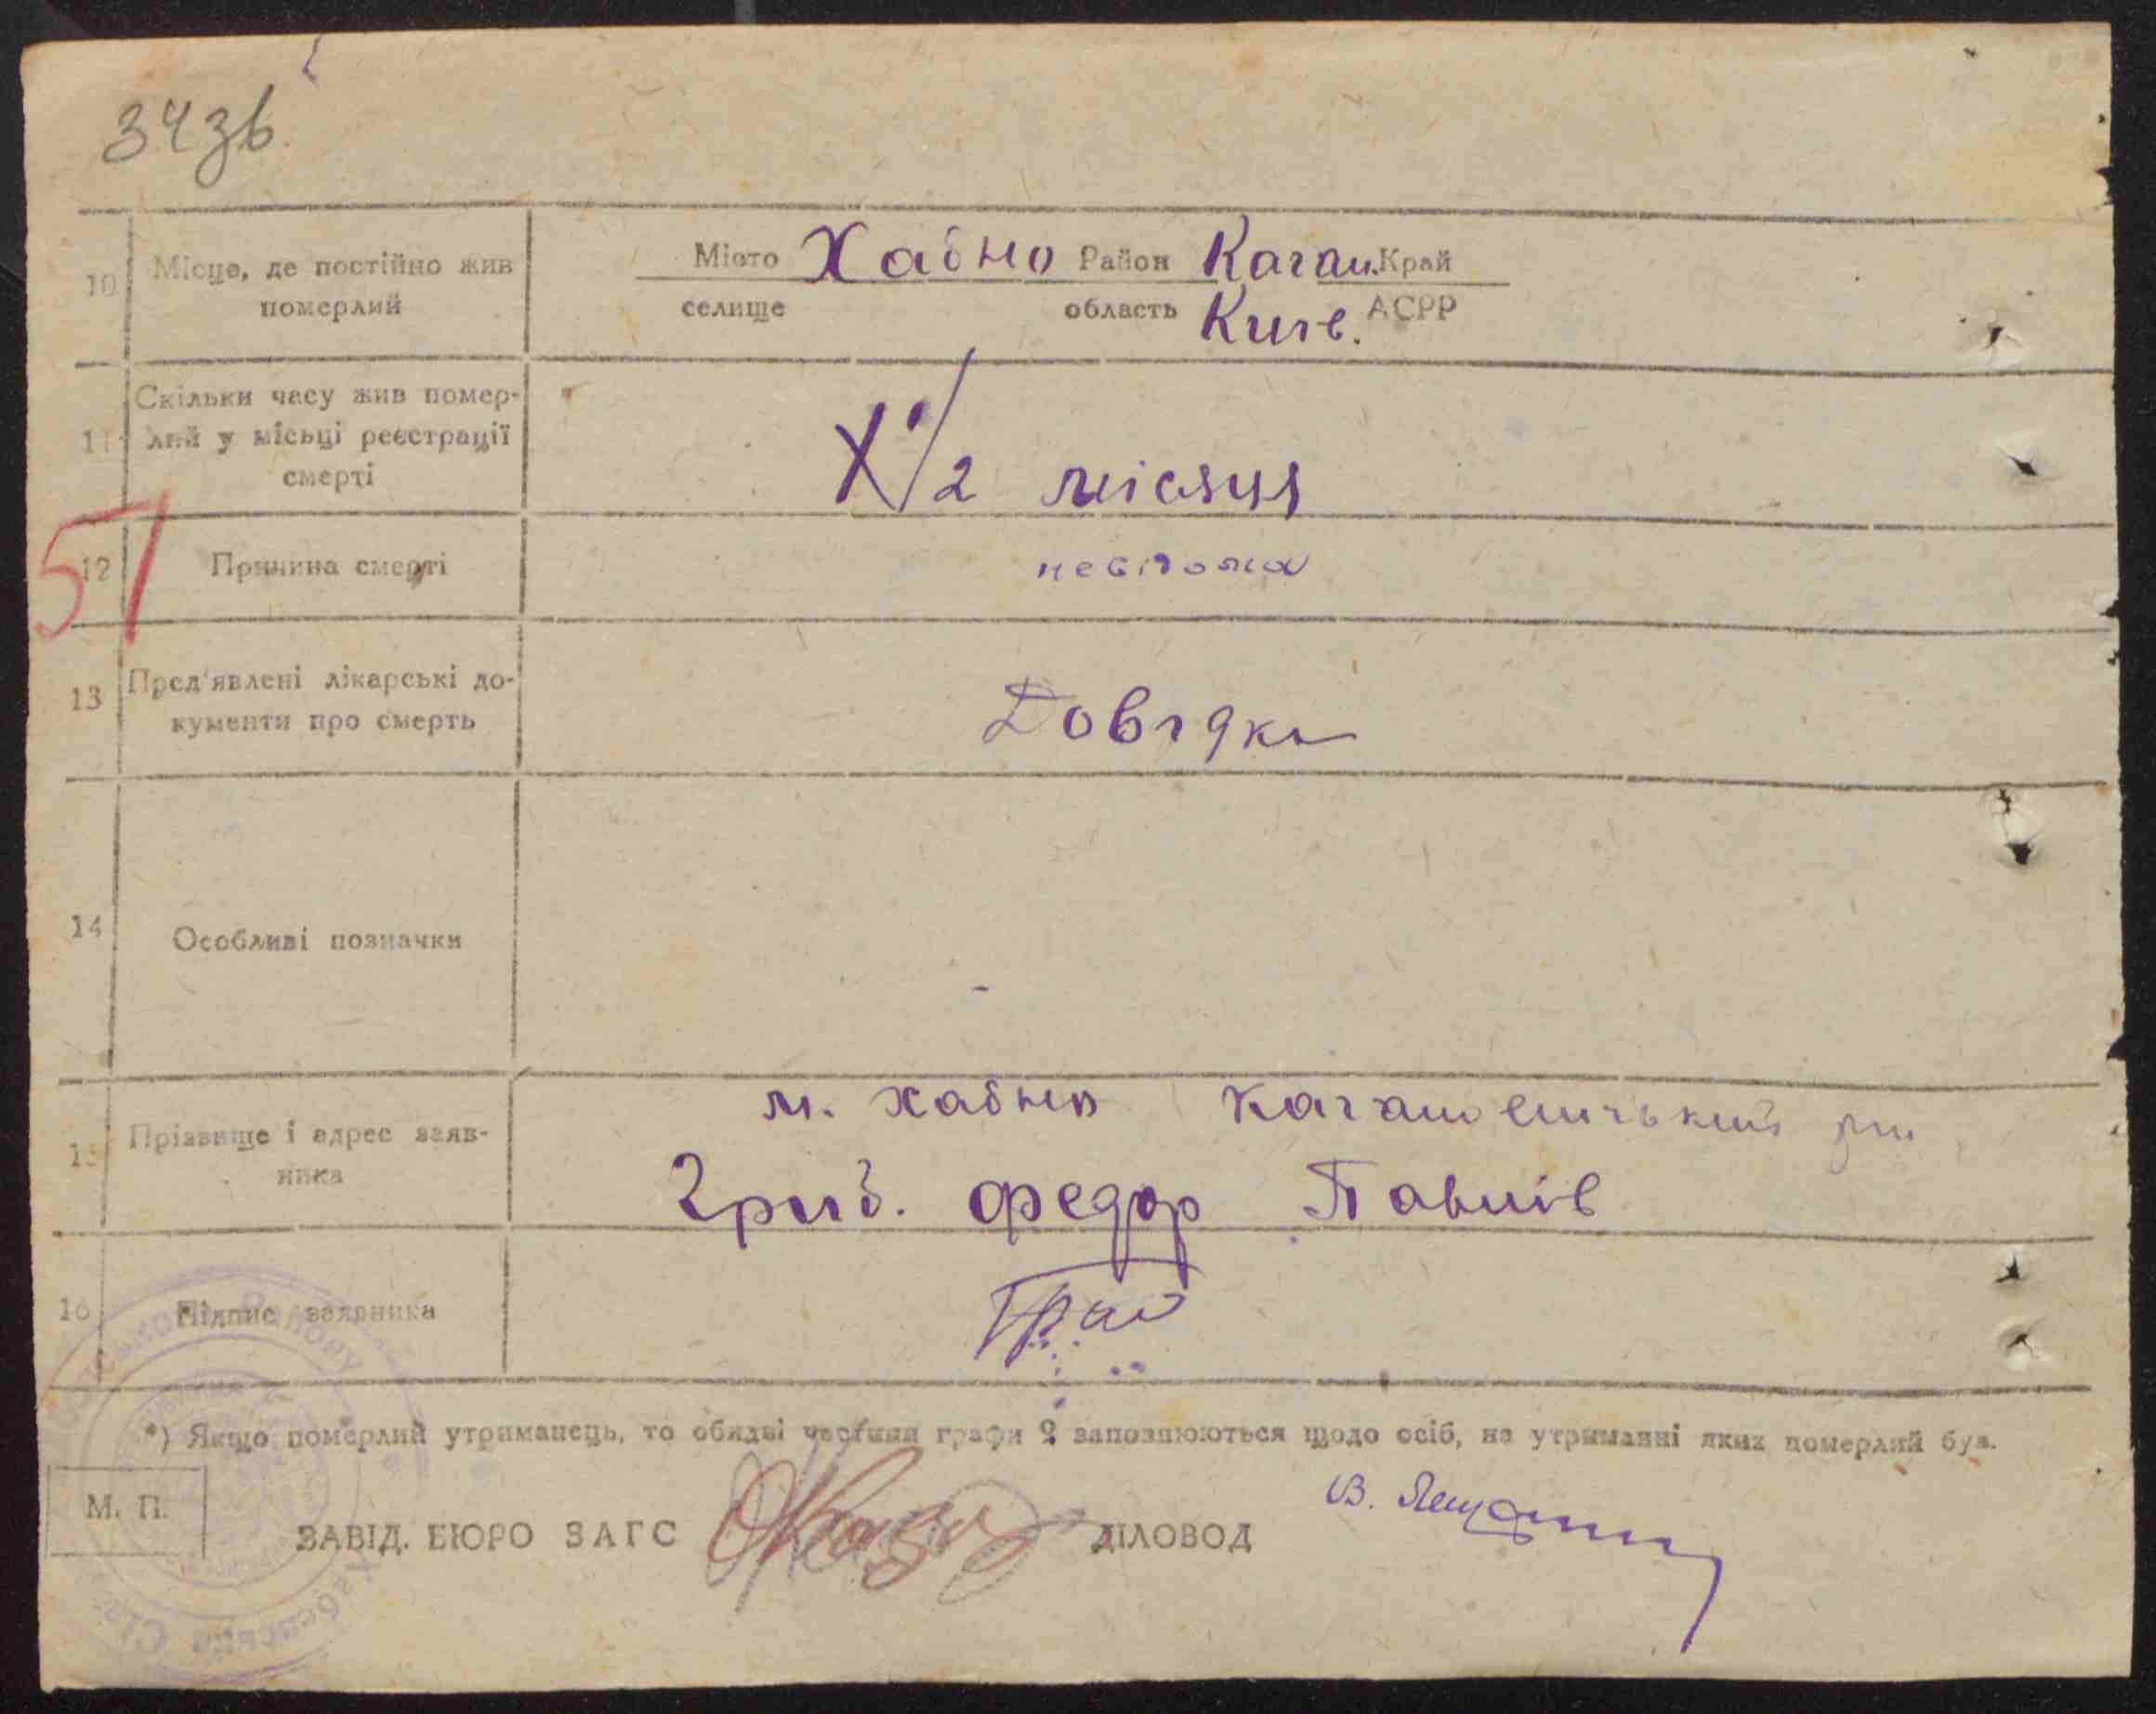 34зв.
10 Місце, де постійно жив померлий
Місто Хабно Район Каган. Край
селище область Київ. АСРР
11 Скільки часу жив помер-
лий у місьці реєстрації
смерті
1/2 місяця
51
12 Причина смерті невідома
13 Пред'явлені лікарські до-
кументи про смерть
Довідка
14 Особливі позначки
-
15 Прізвище і адрес заяв-
ника
м. Хабно Кагановичський
Гриб. Федор Павлів
16 Підпис заявника
Гриб
*) Якщо померлий утриманець, то обидві частини графи 2 заповнюються щодо осіб, на утриманні яких померлий був.
М. П.
ЗАВІД. БЮРО ЗАГС ДІЛОВОД В.